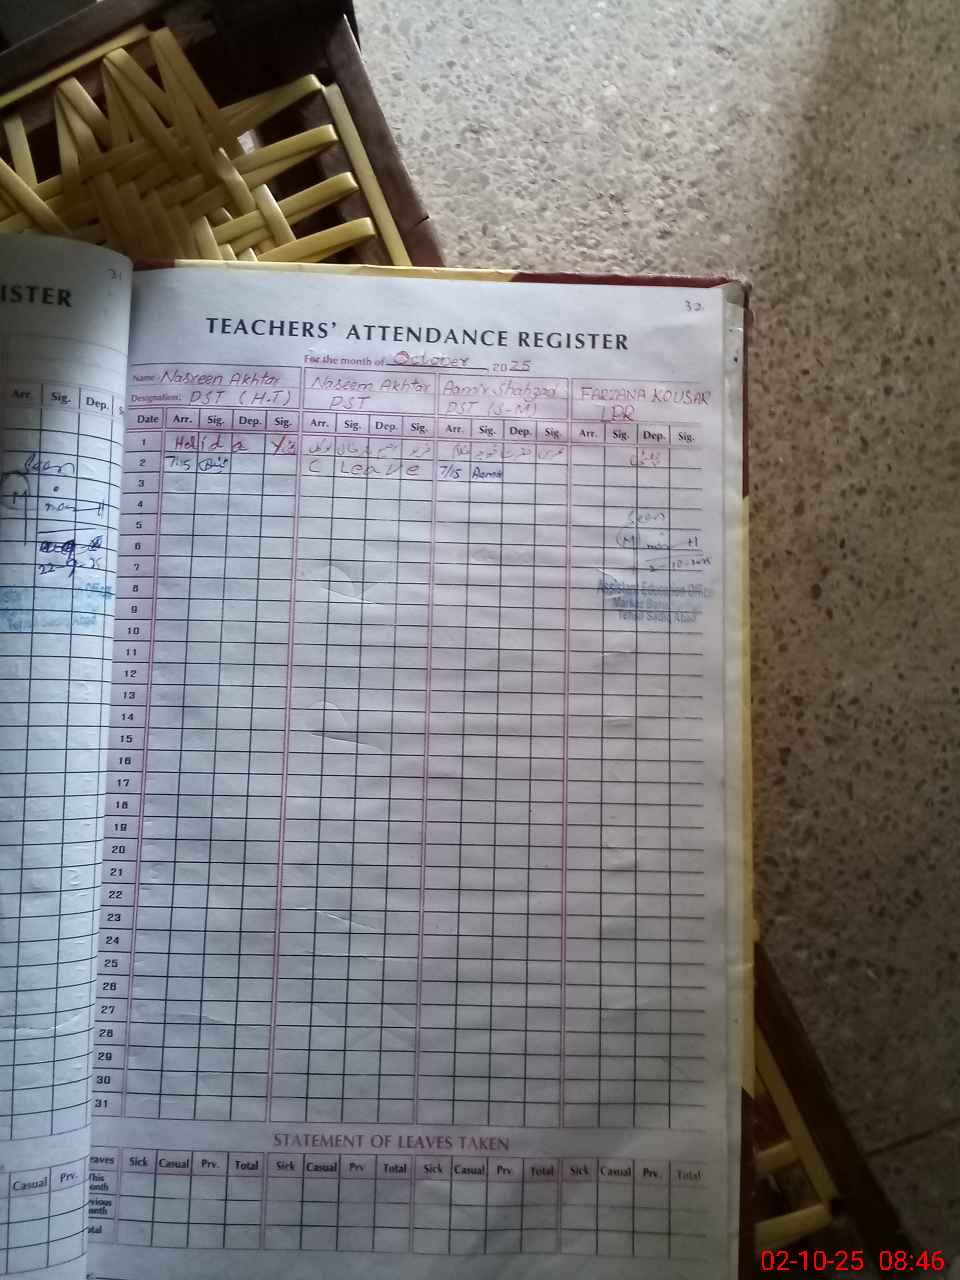 31
ISTER
Arr. Sig. Dep.
Seen
22-9-25
Casual Prv.
32
TEACHERS' ATTENDANCE REGISTER
For the month of October, 2025
Name: Nasreen Akhtar Naseem Akhtar Aamir Shahzad FARZANA KOUSAR
Designation: DST (H.T) DST DST (S-M) LPR
Date Arr. Sig. Dep. Sig. Arr. Sig. Dep. Sig. Arr. Sig. Dep. Sig. Arr. Sig. Dep. Sig.
1 Holiday
2 7:15 C Leave 7/15 Aamir
3
4
5 Seen
6
7 2-10-2025
8 Assistant Education Officer
9 Markaz
10 Tehsil Sadiq Abad
11
12
13
14
15
16
17
18
19
20
21
22
23
24
25
26
27
28
29
30
31
STATEMENT OF LEAVES TAKEN
eaves Sick Casual Prv. Total Sick Casual Prv Total Sick Casual Prv. Total Sick Casual Prv. Total
This
onth
evious
onth
otal
02-10-25 08:46